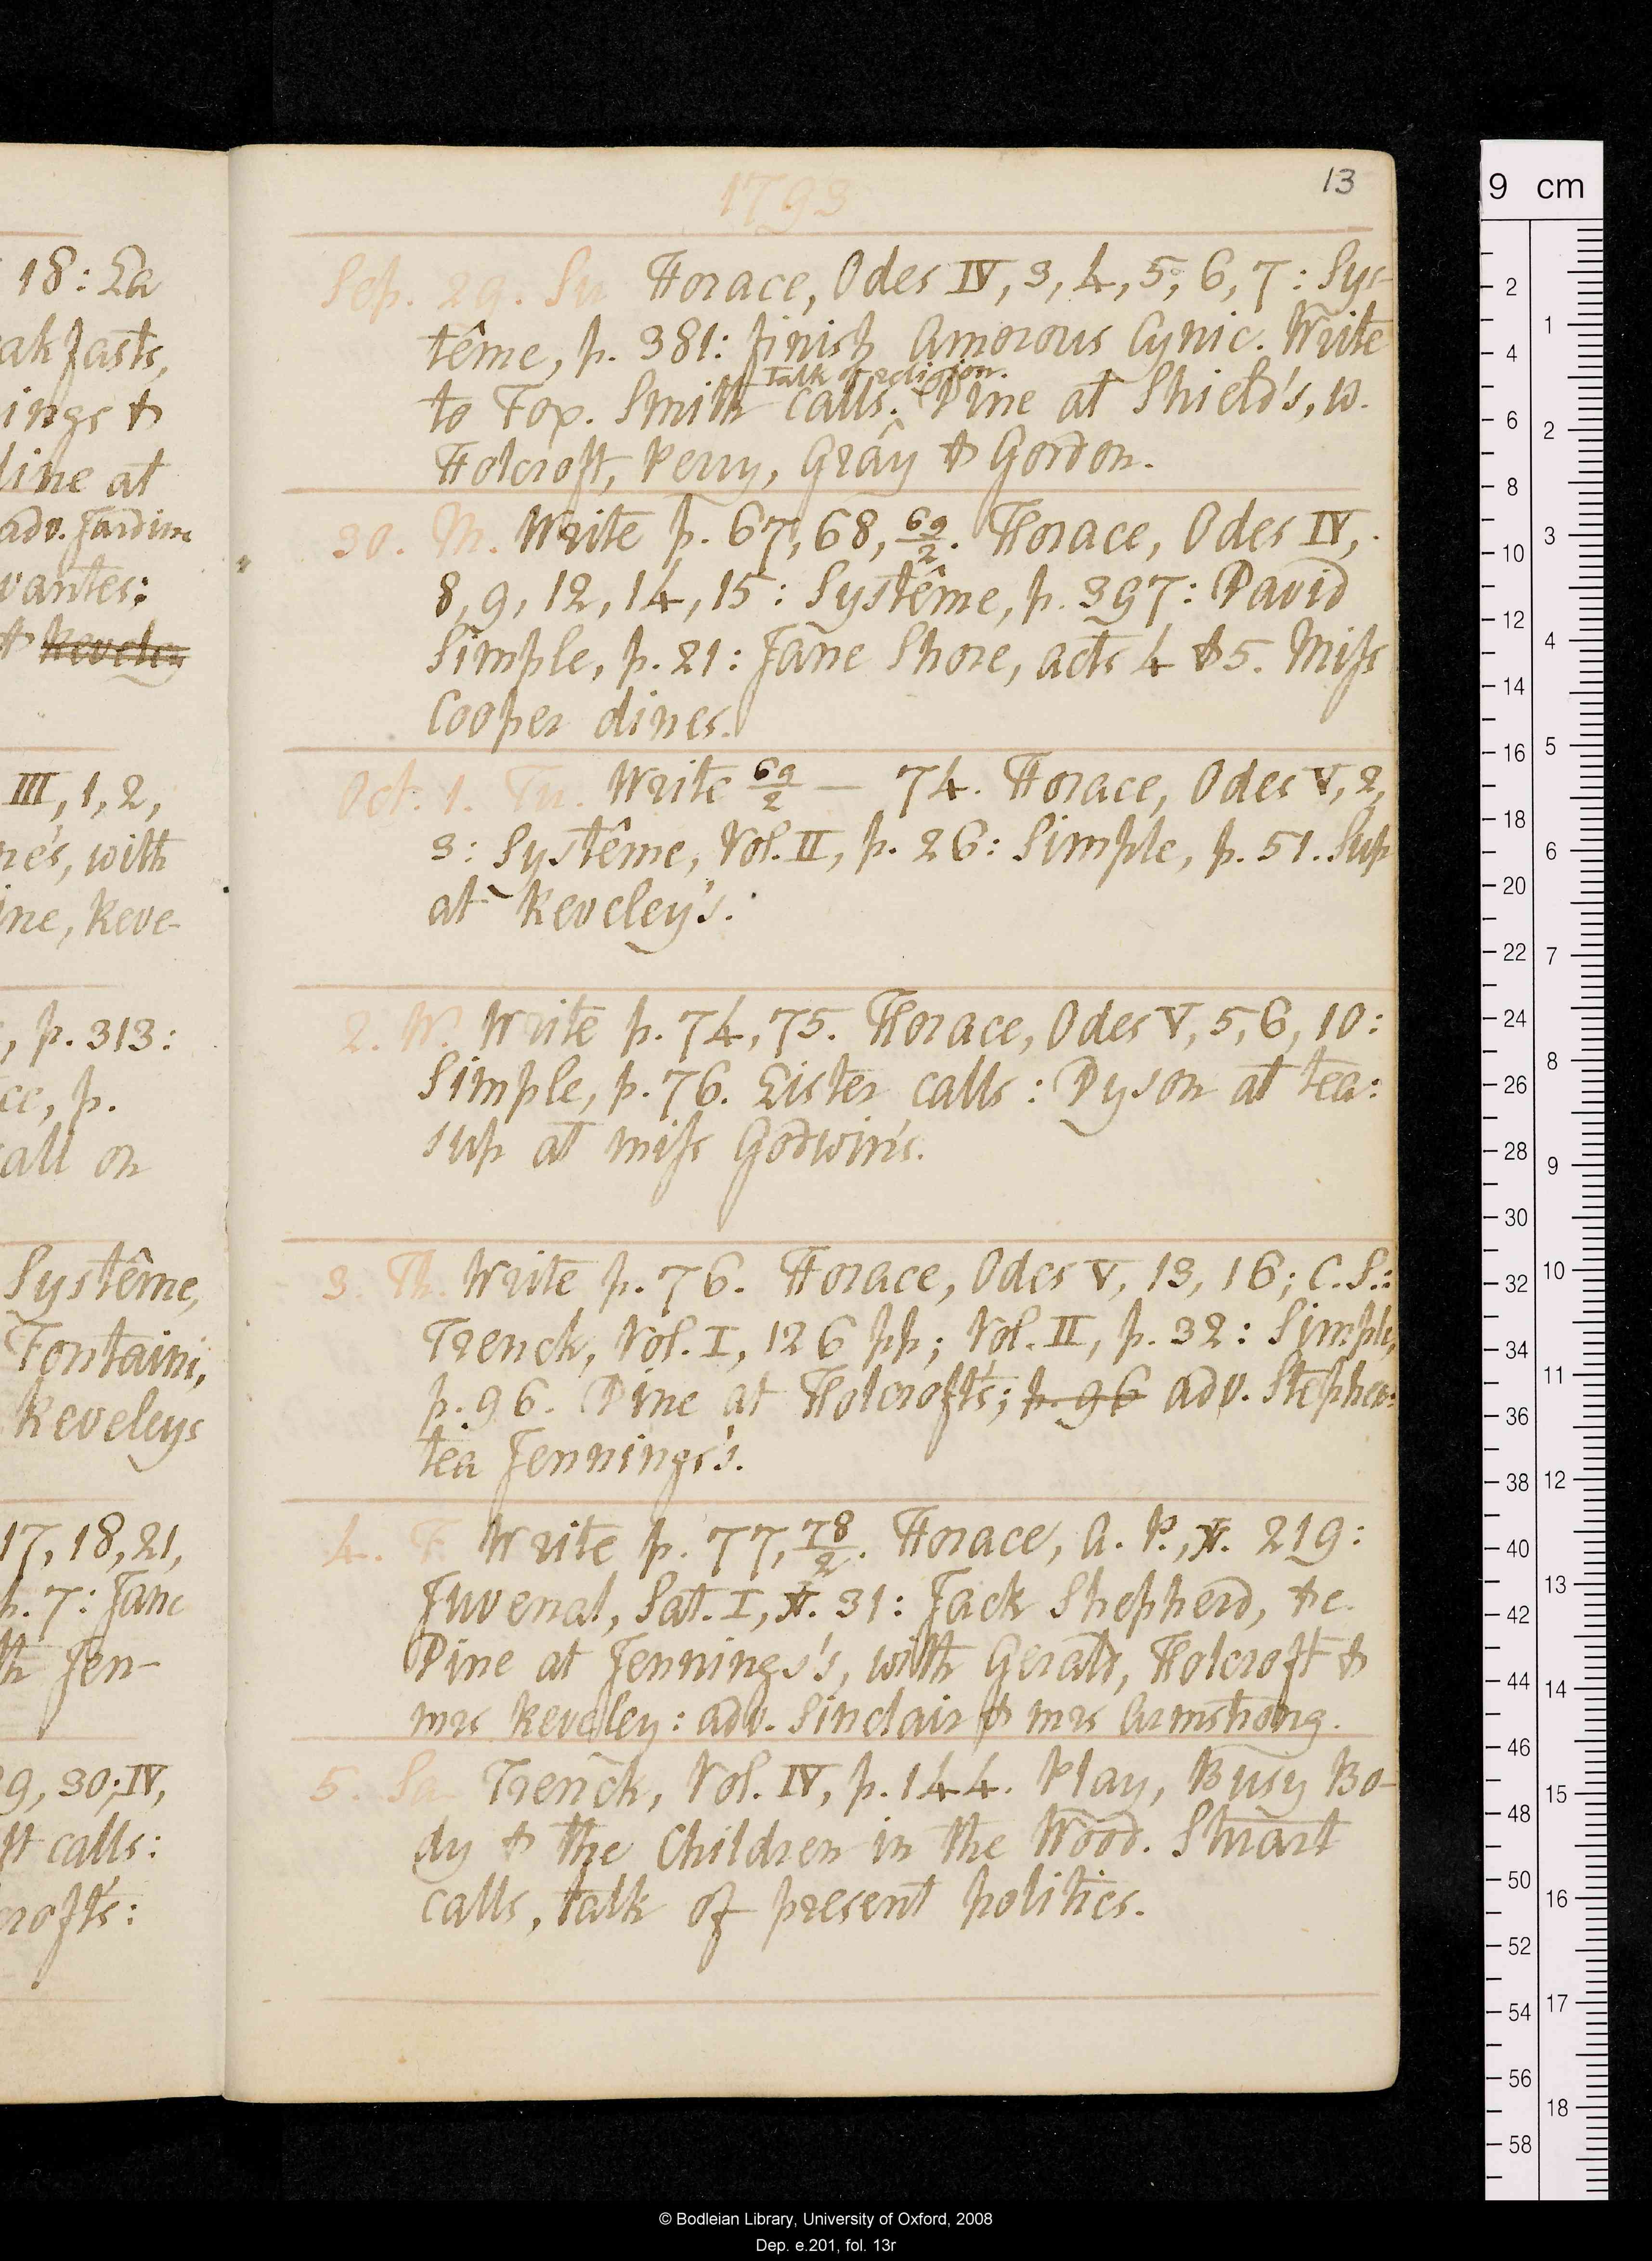 18: La
akfasts,
ings &
line at
adv. Jardine
vantes:
& Reveley
III, 1, 2,
ne's, with
ine, Reve-
, p. 313:
ce, p.
call on
Systême,
Fontaini,
Reveleys
17, 18, 21,
p. 7: Jane
th Jen-
29, 30; IV,
ft calls:
crofts:
13
1793
Sep. 29. Su Horace, Odes IV, 3, 4, 5, 6, 7: Sys-
tême, p. 381: finish Amorous Cynic. Write
Talk of religion.
to Fox. Smith calls. ^ Dine at Shield's, w.
Holcroft, Perry, Gray & Gordon.
30. M. Write p. 67, 68, 69/2. Horace, Odes IV,
8, 9, 12, 14, 15: Systême, p. 397: David
Simple, p. 21: Jane Shore, acts 4 & 5. Miss
Cooper dines.
Oct. 1. Tu. Write 69/2 — 74. Horace, Odes V, 2,
3: Systême, Vol. II, p. 26: Simple, p. 51. Sup
at Reveley's.
2. W. Write p. 74, 75. Horace, Odes V, 5, 6, 10:
Simple, p. 76. Lister calls: Dyson at tea:
sup at miss Godwin's.
3. Th. Write p. 76. Horace, Odes V, 13, 16; C.S.:
Trenck, Vol. I, 126 pp; Vol. II, p. 32: Simple,
p. 96. Dine at Holcroft's; p. 96 adv. Stephen:
tea Jennings's.
4. F. Write p. 77, 78/2. Horace, A. P., v. 219:
Juvenal, Sat. I, v. 31: Jack Shepherd, &c.
Dine at Jennings's, with Gerald, Holcroft &
mrs Reveley: adv. Sinclair & mrs Armstrong.
5. Sa Trenck, Vol. IV, p. 144. Play, Busy Bo-
dy & the Children in the Wood. Stuart
calls, talk of present politics.
9 cm
2
4
6
8
10
12
14
16
18
20
22
24
26
28
30
32
34
36
38
40
42
44
46
48
50
52
54
56
58
1
2
3
4
5
6
7
8
9
10
11
12
13
14
15
16
17
18
© Bodleian Library, University of Oxford, 2008
Dep. e.201, fol. 13r